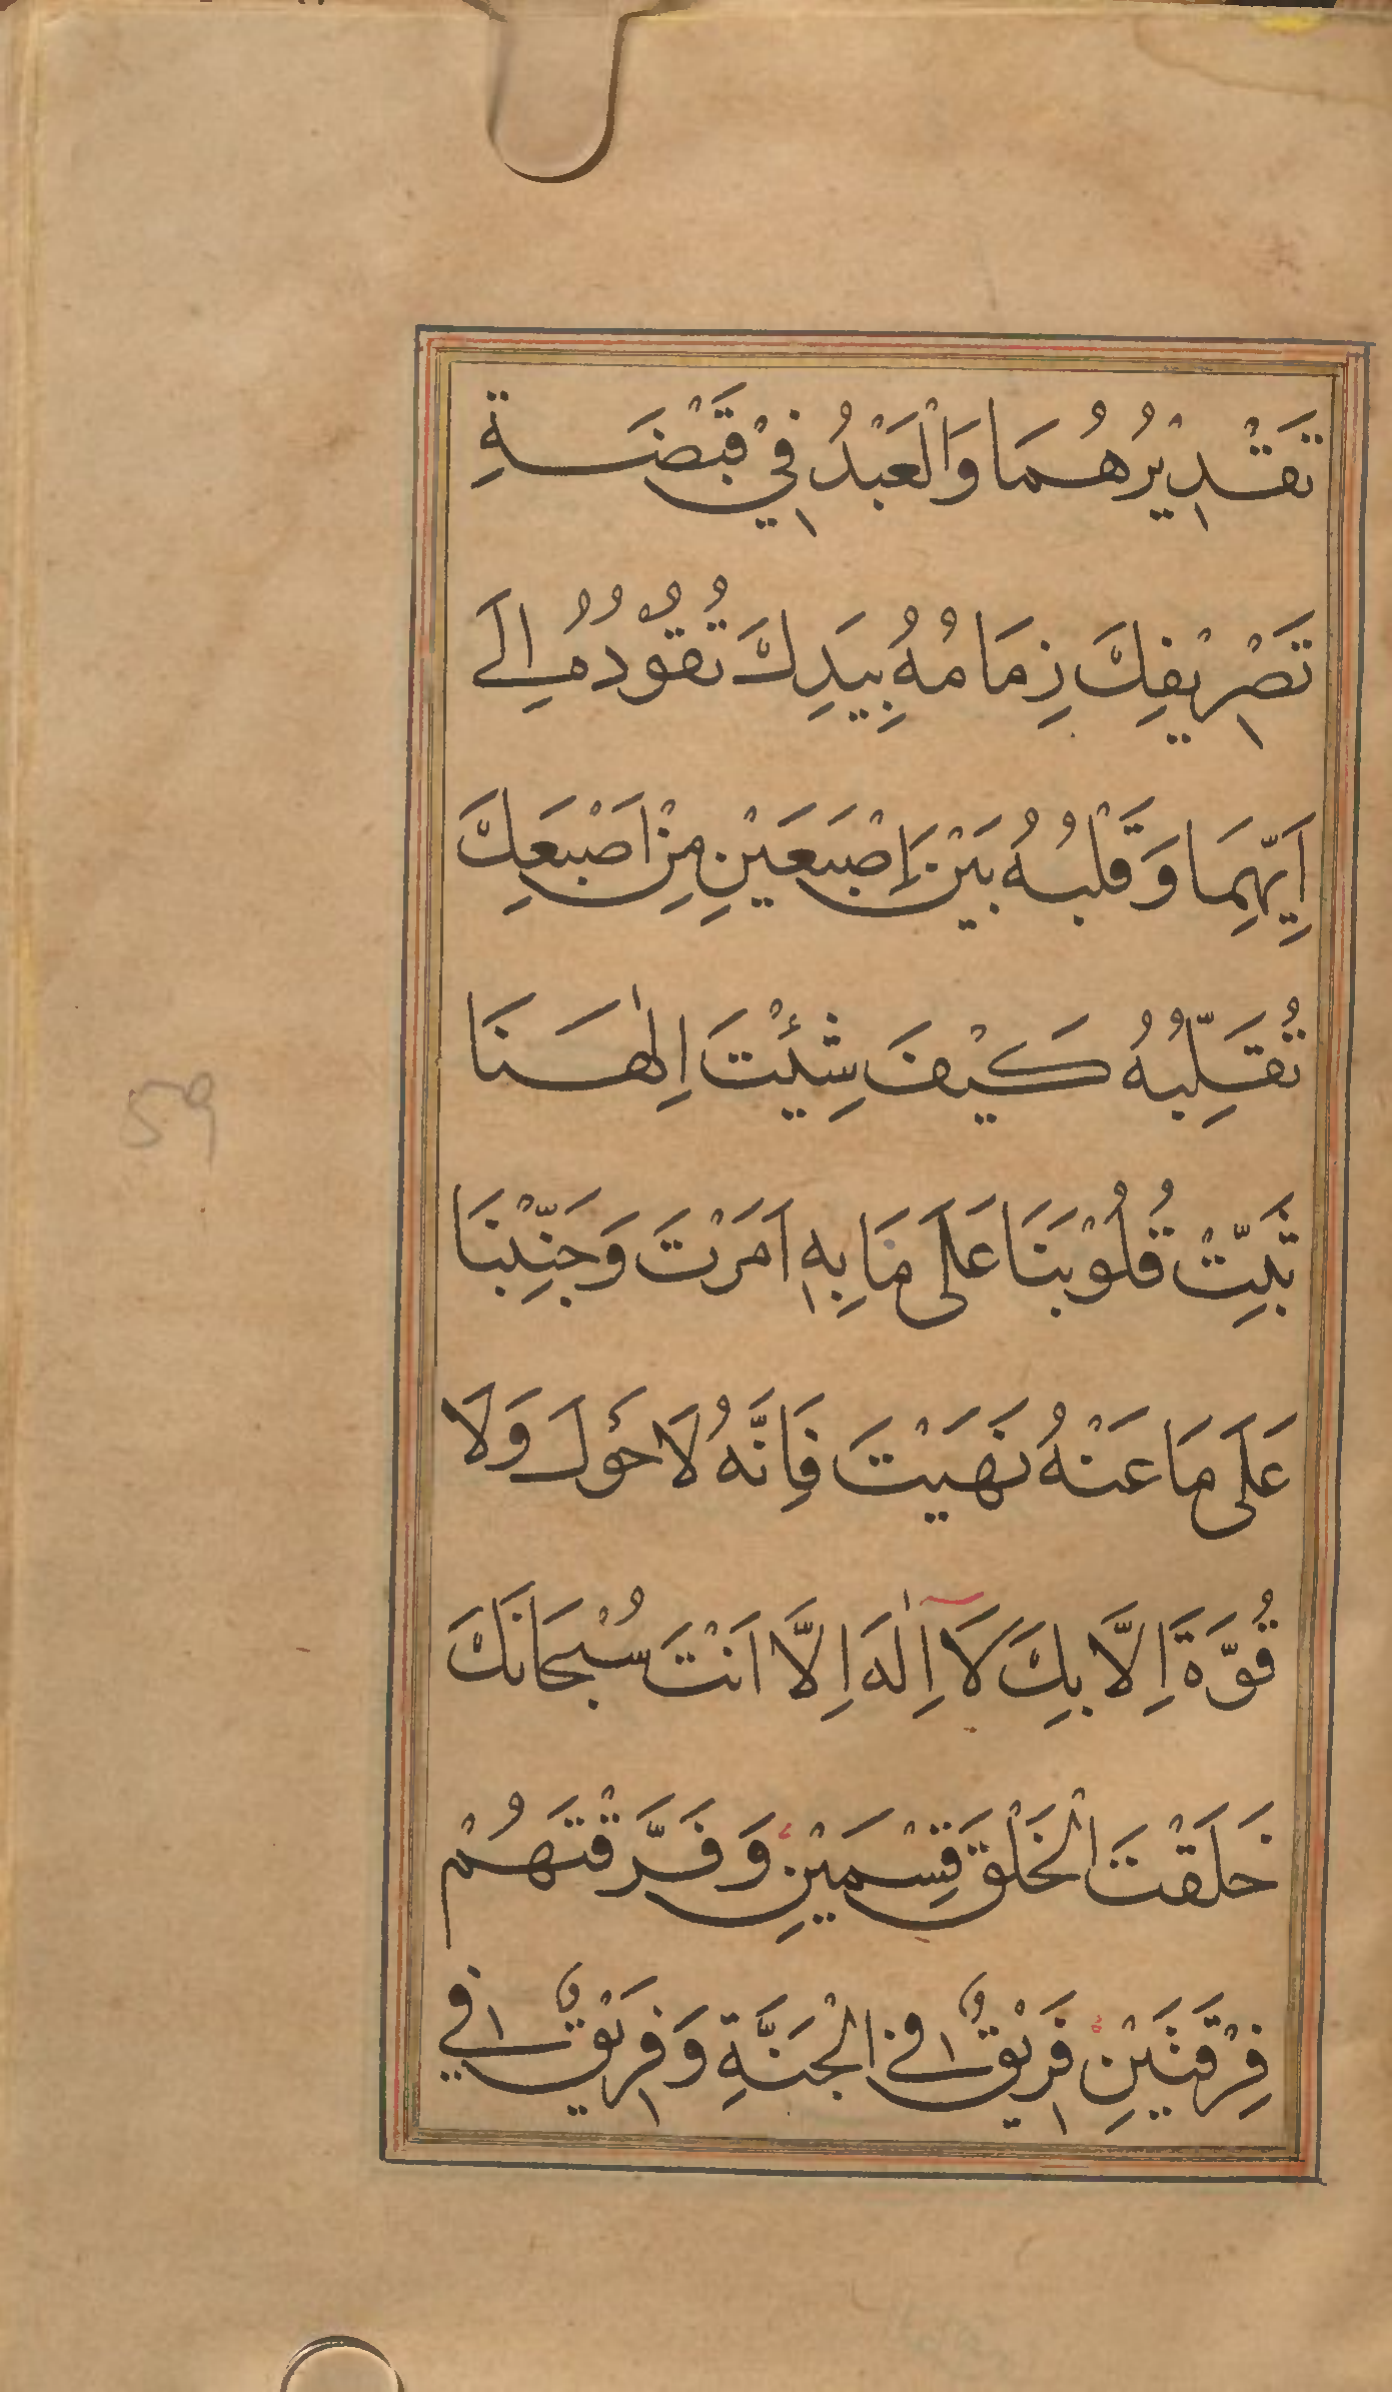 تَقْدِيْرُهُمَا وَالْعَبْدُ فِيْ قَبْضَةِ
تَصْرِيْفِكَ زِمَامُهُ بِيَدِكَ تَقُوْدُهُ اِلَى
اَيِّهِمَا وَقَلْبُهُ بَيْنَ إِصْبَعَيْنِ مِنْ اَصْبَعِكَ
تُقَلِّبُهُ كَيْفَ شِئْتَ اِلٰهَنَا
ثَبِّتْ قُلُوْبَنَا عَلَى مَا بِهِ اَمَرْتَ وَجَنِّبْنَا
عَلَى مَا عَنْهُ نَهَيْتَ فَاِنَّهُ لَا حَوْلَ وَلَا
قُوَّةَ اِلَّا بِكَ لَا اِلٰهَ اِلَّا اَنْتَ سُبْحَانَكَ
خَلَقْتَ الْخَلْقَ قِسْمَيْنِ وَفَرَّقْتَهُمْ
فِرْقَتَيْنِ فَرِيْقٌ فِي الْجَنَّةِ وَفَرِيْقٌ فِي
59